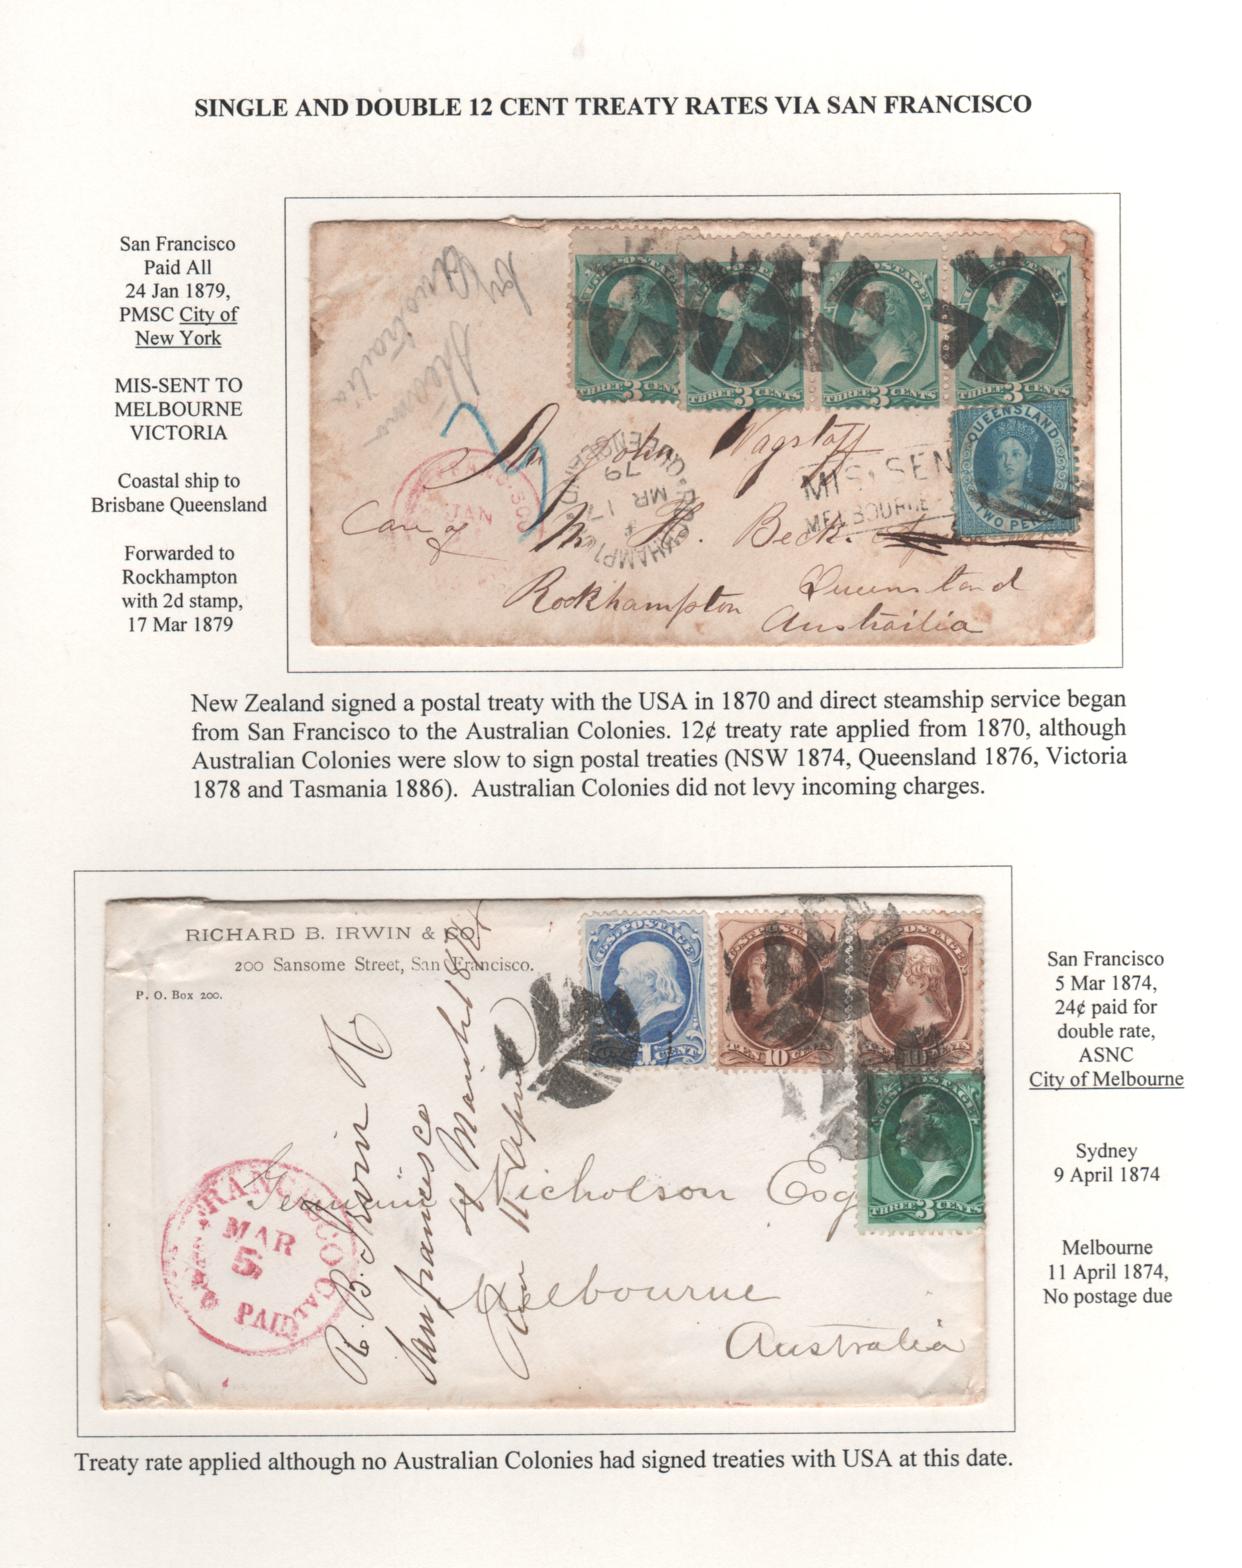 SINGLE AND DOUBLE 12 CENT TREATY RATES VIA SAN FRANCISCO
San Francisco
Paid All
24 Jan 1879,
PMSC City of
New York
MIS-SENT TO
MELBOURNE
VICTORIA
Coastal ship to
Brisbane Queensland
Forwarded to
Rockhampton
with 2d stamp,
17 Mar 1879
Australia
THREE 3 CENTS
THREE 3 CENTS
THREE 3 CENTS
THREE 3 CENTS
QUEENSLAND
TWO PENCE
John Wagstaff
Care of M. H. Beck.
Rockhampton Queensland
Austrailia
MIS-SEN
MELBOURNE
JAN
ROCKHAMPTO
MR 17
79
QUEENSLAND
New Zealand signed a postal treaty with the USA in 1870 and direct steamship service began
from San Francisco to the Australian Colonies. 12¢ treaty rate applied from 1870, although
Australian Colonies were slow to sign postal treaties (NSW 1874, Queensland 1876, Victoria
1878 and Tasmania 1886). Australian Colonies did not levy incoming charges.
RICHARD B. IRWIN & CO.
200 Sansome Street, San Francisco.
P. O. Box 200.
U.S. POSTAGE
CENT
TEN 10 CENTS
10
POSTAGE
THREE 3 CENTS
R. B. Irwin
San francisco
4 March 1874
11 April
Nicholson Esq
Melbourne
Australia
FRANCISCO CAL
MAR
5
PAID
San Francisco
5 Mar 1874,
24¢ paid for
double rate,
ASNC
City of Melbourne
Sydney
9 April 1874
Melbourne
11 April 1874,
No postage due
Treaty rate applied although no Australian Colonies had signed treaties with USA at this date.